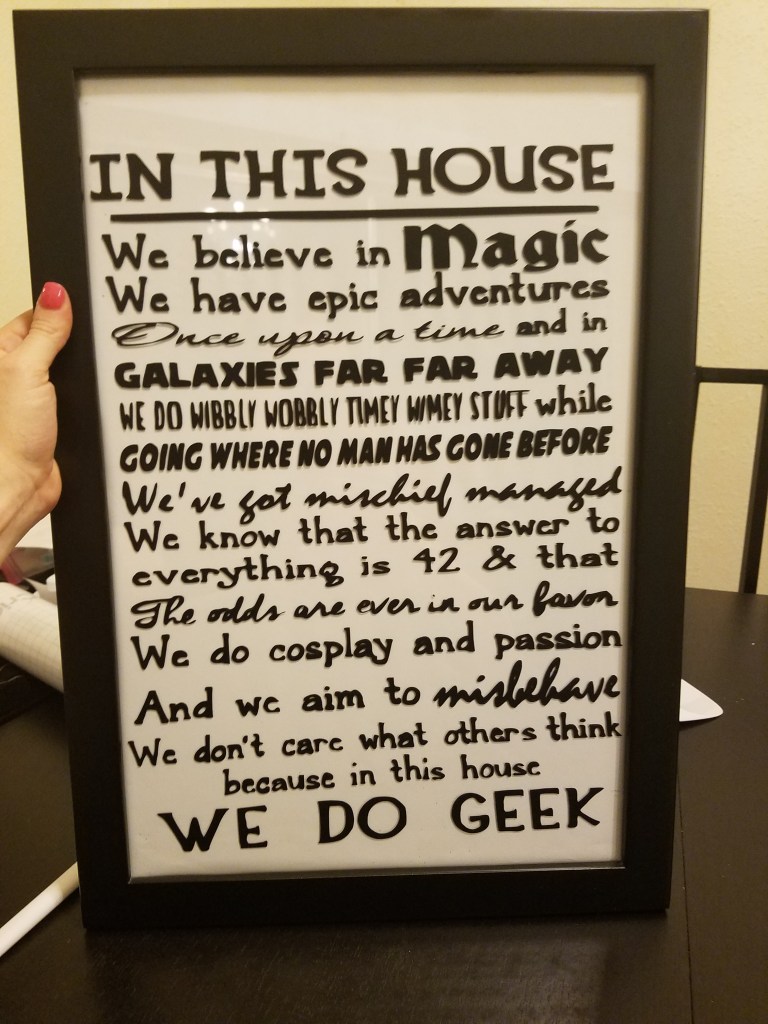 IN THIS HOUSE
We believe in Magic
We have epic adventures
Once upon a time and in
GALAXIES FAR FAR AWAY
WE DO WIBBLY WOBBLY TIMEY WIMEY STUFF while
GOING WHERE NO MAN HAS GONE BEFORE
We've got mischief managed
We know that the answer to
everything is 42 & that
The odds are ever in our favor
We do cosplay and passion
And we aim to misbehave
We don't care what others think
because in this house
WE DO GEEK